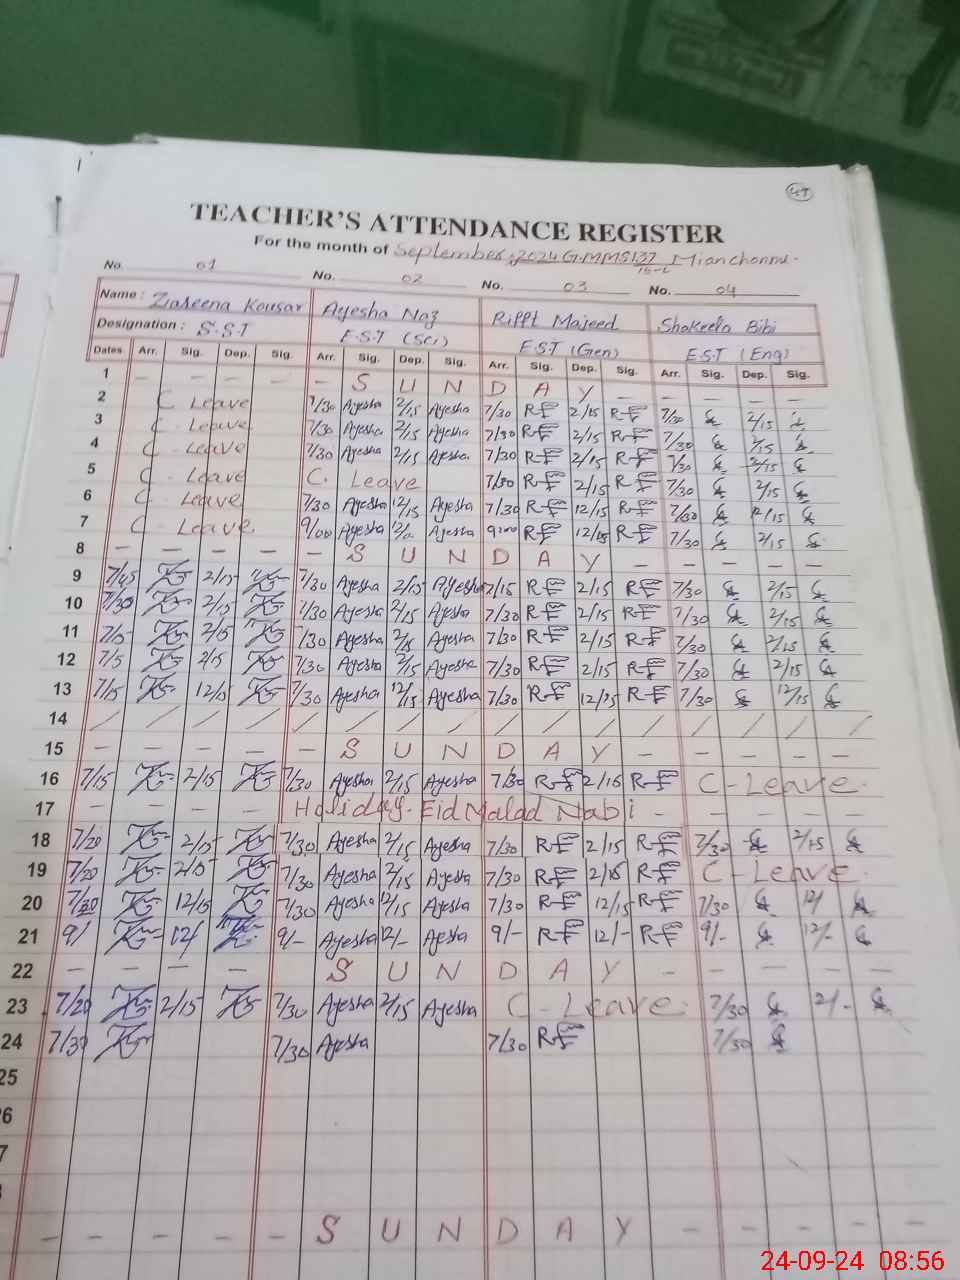 47
TEACHER'S ATTENDANCE REGISTER
For the month of September, 2024 G.MMS 137/15-L Mianchannu.
No. 01 No. 02 No. 03 No. 04
Name: Zareena Kousar Ayesha Naz Rifft Majeed Shakeela Bibi
Designation: S.S.T E.S.T (Sci) E.S.T (Gen) E.S.T (Eng)
Dates Arr. Sig. Dep. Sig. Arr. Sig. Dep. Sig. Arr. Sig. Dep. Sig. Arr. Sig. Dep. Sig.
1 - - - - - S U N D A Y - - - -
2 C Leave 7/30 Ayesha 2/15 Ayesha 7/30 2/15 7/30 2/15
3 C - Leave 7/30 Ayesha 2/15 Ayesha 7/30 2/15 7/30 2/15
4 C - Leave 7/30 Ayesha 2/15 Ayesha 7/30 2/15 7/30 2/15
5 C - Leave C. Leave 7/30 2/15 7/30 2/15
6 C - Leave 7/30 Ayesha 12/15 Ayesha 7/30 12/15 7/30 12/15
7 C - Leave 9/00 Ayesha Ayesha 9:00 7/30 2/15
8 - - - - - S U N D A Y - - - -
9 7/45 2/15 7/30 Ayesha 2/15 Ayesha 2/15 2/15 7/30 2/15
10 7/30 2/15 7/30 Ayesha 2/15 Ayesha 7/30 2/15 7/30 2/15
11 7/15 2/15 7/30 Ayesha 2/15 Ayesha 7/30 2/15 7/30 2/15
12 7/5 2/15 7/30 Ayesha 2/15 Ayesha 7/30 2/15 7/30 2/15
13 7/15 12/15 7/30 Ayesha 12/15 Ayesha 7/30 12/15 7/30 12/15
14 / / / / / / / / / / / / / / / /
15 - - - - - S U N D A Y - - - -
16 7/15 2/15 7/30 Ayesha 2/15 Ayesha 7/30 2/15 C - Leave.
17 - - - - Holiday. Eid Malad Nabi - - - -
18 7/20 2/15 7/30 Ayesha 2/15 Ayesha 7/30 2/15 7/30 2/15
19 7/20 2/15 7/30 Ayesha 2/15 Ayesha 7/30 2/15 C - Leave.
20 7/30 12/15 7/30 Ayesha 12/15 Ayesha 7/30 12/15 7/30 12/
21 9/ 12/ 9/- Ayesha 12/- Ayesha 9/- 12/- 9/- 12/-
22 - - - - - S U N D A Y - - - -
23 7/20 2/15 7/30 Ayesha 2/15 Ayesha C - Leave. 7/30 2/-
24 7/30 7/30 Ayesha 7/30 7/30
25
26
7
- - - - - S U N D A Y - - - -
24-09-24 08:56